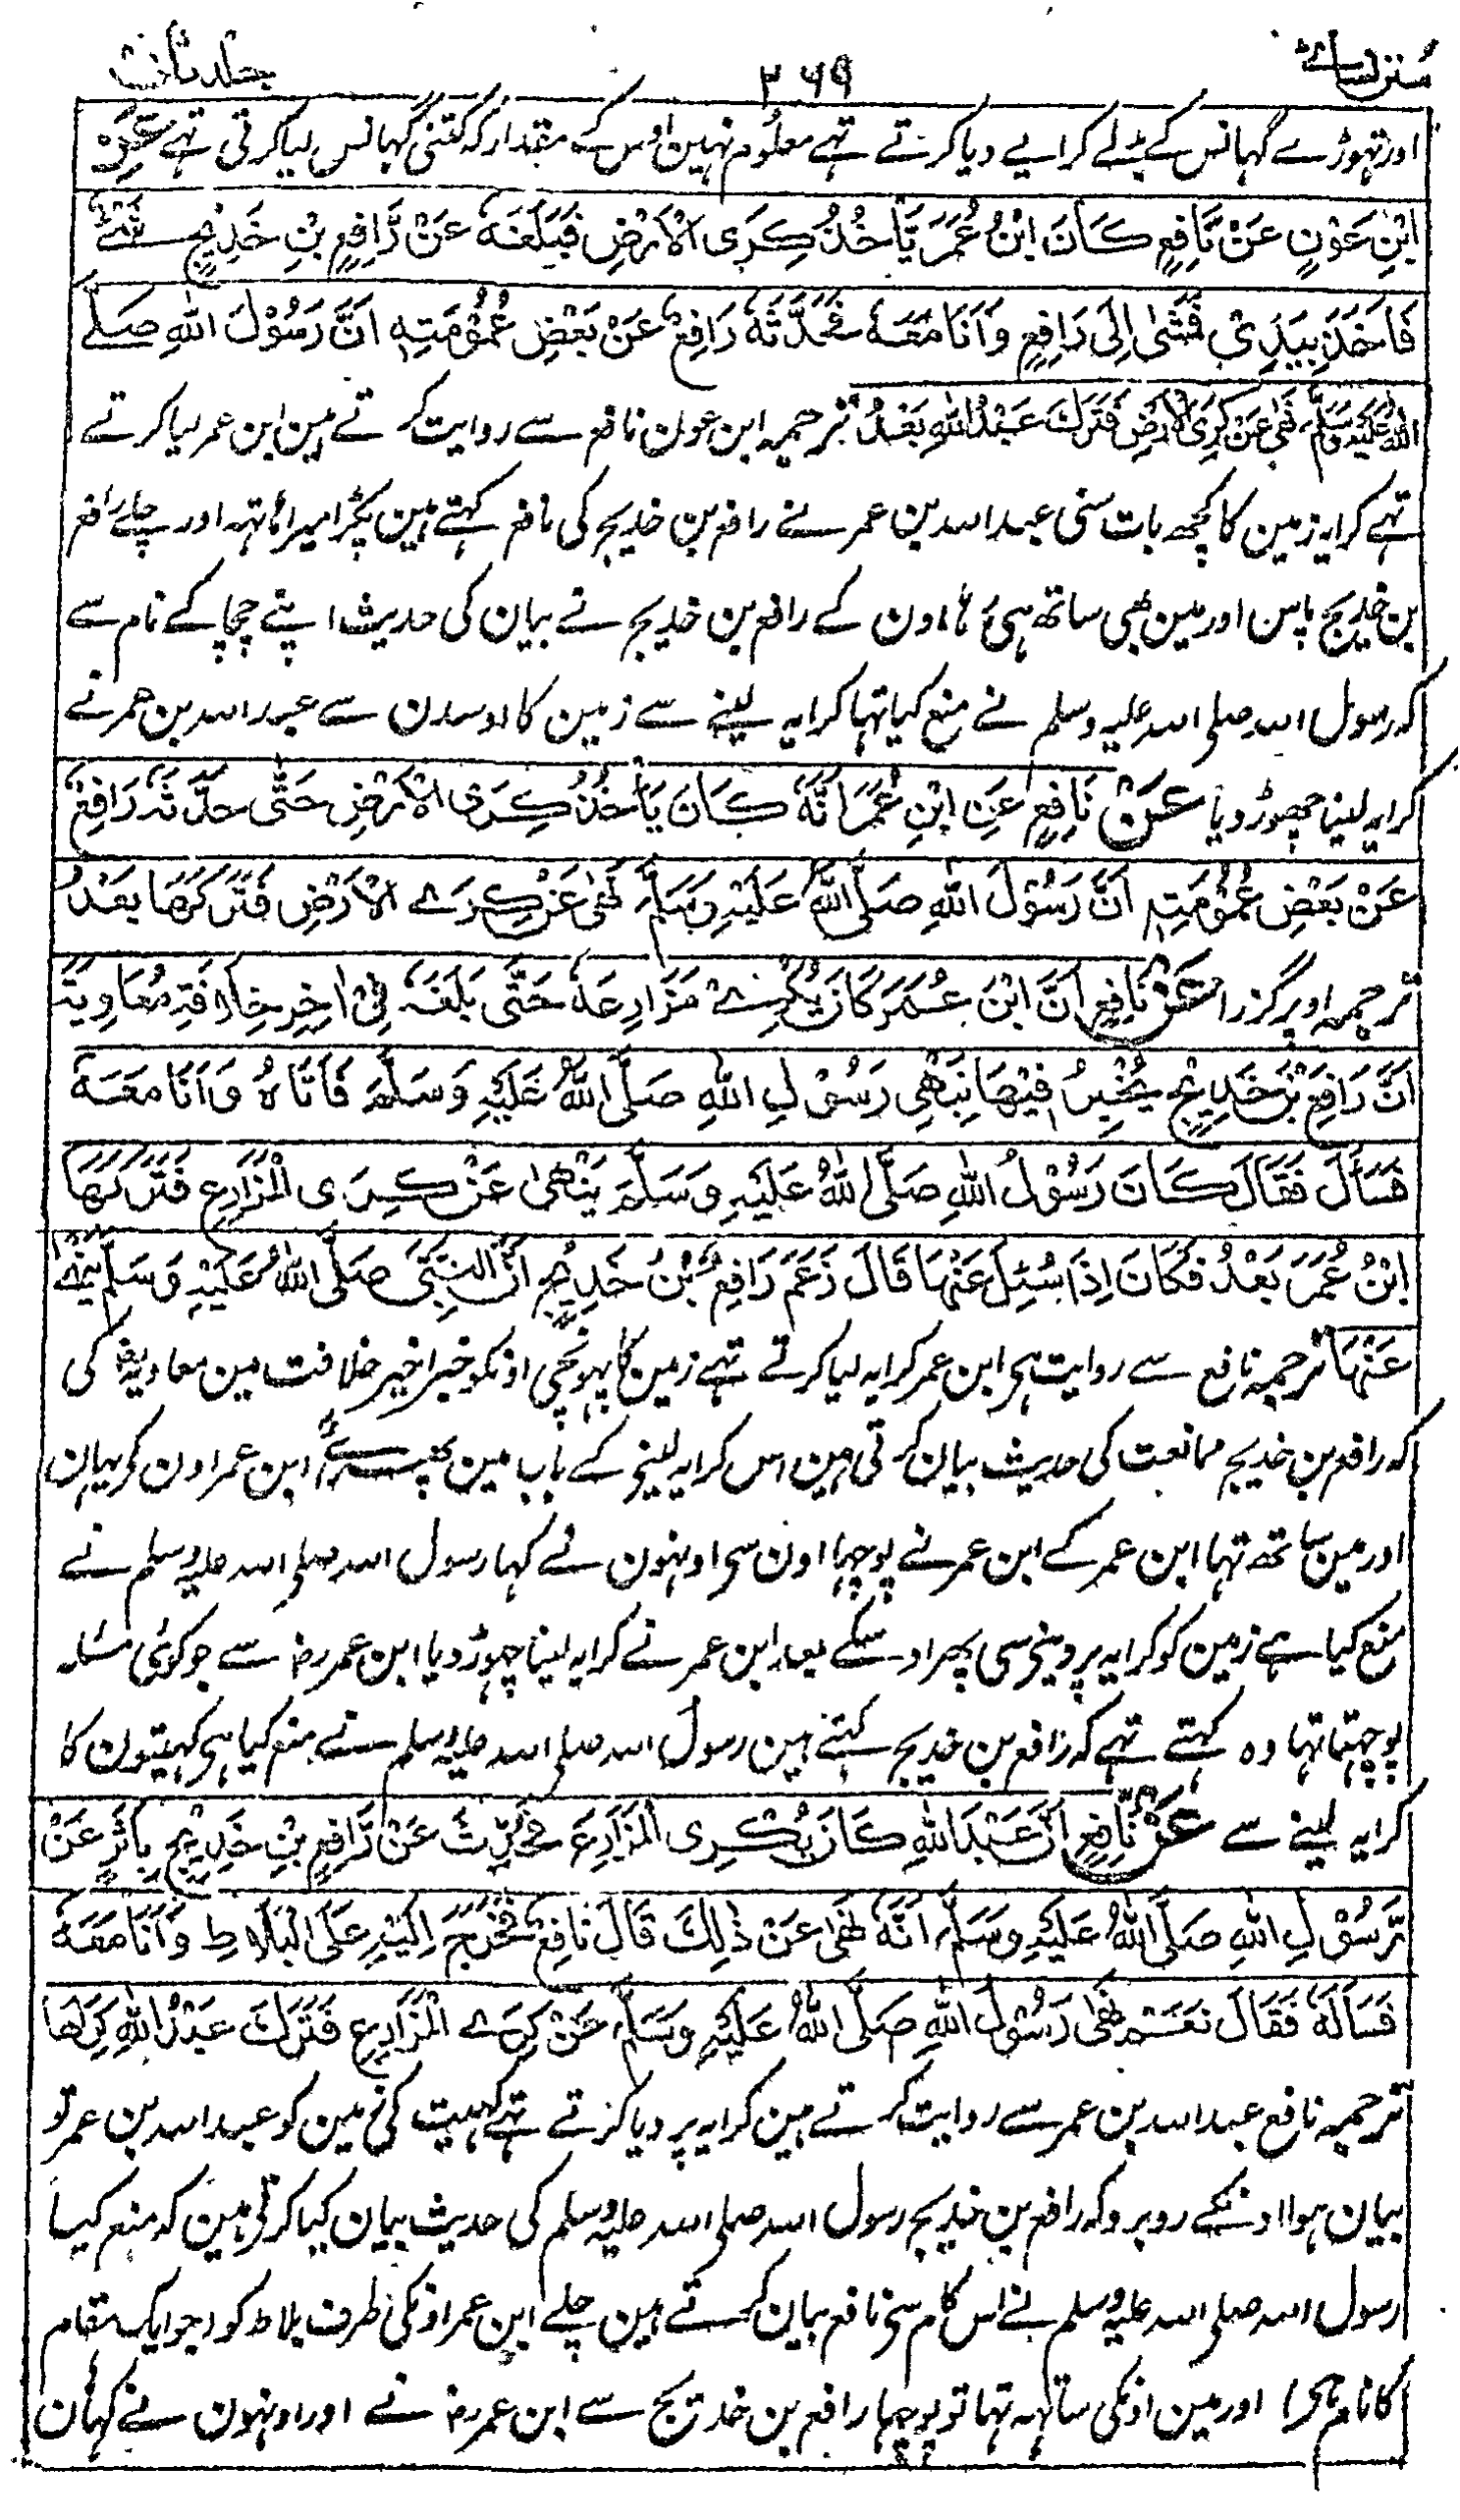 سنن نسائے ۲۶۹ جلد ثالث
اور تہوڑے گہانس کے بدلے کرایے دیا کرتے تہے معلوم نہین اوس کے مقدار کہ کتنی گہانس لیا کرتی تہے عَنِ
ابْنِ عَوْنٍ عَنْ نَّافِعٍ كَانَ ابْنُ عُمَرَ يَأْخُذُ كِرَى الْاَرْضِ فَبَلَغَهٗ عَنْ رَّافِعِ بْنِ خَدِيْجٍ شَئٌ
فَاَخَذَ بِيَدِيْ فَمَشٰى اِلٰى رَافِعٍ وَاَنَا مَعَهٗ فَحَدَّثَهٗ رَافِعٌ عَنْ بَعْضِ عُمُوْمَتِهٖ اَنَّ رَسُوْلَ اللّٰهِ صَلَّى
اللّٰهُ عَلَيْهِ وَسَلَّمَ نَهٰى عَنْ كِرَى الْاَرْضِ فَتَرَكَ عَبْدُ اللّٰهِ بَعْدُ ترجمہ ابن عون نافع سے روایت کرتے ہین ابن عمر لیا کرتے
تہے کرایہ زمین کا کچھ بات سنی عبد اللہ بن عمر نے رافع بن خدیج کی نافع کہتے ہین پکڑا میرا ہاتہہ اور چلے رافع
بن خدیج پاس اور مین بھی ساتھ ہی تہا اون کے رافع بن خدیج نے بیان کی حدیث اپنے چچا کے نام سے
کہ رسول اللہ صلی اللہ علیہ وسلم نے منع کیا تہا کرایہ لینے سے زمین کا اوسدن سے عبد اللہ بن عمر نے
کرایہ لینا چھوڑ دیا عَنْ نَافِعٍ عَنِ ابْنِ عُمَرَ اَنَّهٗ كَانَ يَأْخُذُ كِرَى الْاَرْضِ حَتّٰى حَدَّثَهٗ رَافِعٌ
عَنْ بَعْضِ عُمُوْمَتِهٖ اَنَّ رَسُوْلَ اللّٰهِ صَلَّى اللّٰهُ عَلَيْهِ وَسَلَّمَ نَهٰى عَنْ كِرَے الْاَرْضِ فَتَرَكَهَا بَعْدُ
ترجمہ اوپر گزرا عَنْ نَافِعٍ اَنَّ ابْنَ عُمَرَ كَانَ يُكْرِےْ مَزَارِعَهٗ حَتّٰى بَلَغَهٗ فِيْ اٰخِرِ خِلَافَةِ مُعَاوِيَةَ
اَنَّ رَافِعَ بْنَ خَدِيْجٍ يُخْبِرُ فِيْهَا بِنَهْيِ رَسُوْلِ اللّٰهِ صَلَّى اللّٰهُ عَلَيْهِ وَسَلَّمَ فَاَتَاهُ وَاَنَا مَعَهٗ
فَسَأَلَ فَقَالَ كَانَ رَسُوْلُ اللّٰهِ صَلَّى اللّٰهُ عَلَيْهِ وَسَلَّمَ يَنْهٰى عَنْ كِرَى الْمَزَارِعِ فَتَرَكَهَا
ابْنُ عُمَرَ بَعْدُ فَكَانَ اِذَا سُئِلَ عَنْهَا قَالَ زَعَمَ رَافِعُ بْنُ خَدِيْجٍ اَنَّ النَّبِيَّ صَلَّى اللّٰهُ عَلَيْهِ وَسَلَّمَ نَهٰى
عَنْهَا ترجمہ نافع سے روایت ہی ابن عمر کرایہ لیا کرتے تہے زمین کا پہونچی اونکو خبر اخیر خلافت مین معاویہ کی
کہ رافع بن خدیج ممانعت کی حدیث بیان کرتی ہین اس کرایہ لینے کے باب مین پہر گئے ابن عمر اون کی یہان
اور مین ساتھ تہا ابن عمر کے ابن عمر نے پوچہا اون سی اونہون نے کہا رسول اللہ صلی اللہ علیہ وسلم نے
منع کیا ہے زمین کو کرایہ پر دینی سی پھر اوسکے بعد ابن عمر نے کرایہ لینا چہوڑ دیا ابن عمر رضہ سے جو کوئی مسئلہ
پوچہتا تہا وہ کہتے تہے کہ رافع بن خدیج کہتے ہین رسول اللہ صلی اللہ علیہ وسلم نے منع کیا ہی کہیتون کا
کرایہ لینے سے عَنْ نَّافِعٍ اَنَّ عَبْدَ اللّٰهِ كَانَ يُكْرِى الْمَزَارِعَ فَحُدِّثَ عَنْ رَّافِعِ بْنِ خَدِيْجٍ يَاْثُرُ عَنْ
رَّسُوْلِ اللّٰهِ صَلَّى اللّٰهُ عَلَيْهِ وَسَلَّمَ اَنَّهٗ نَهٰى عَنْ ذٰلِكَ قَالَ نَافِعٌ فَخَرَجَ اِلَيْهِ عَلَى الْبَلَاطِ وَاَنَا مَعَهٗ
فَسَاَلَهٗ فَقَالَ نَعَمْ نَهٰى رَسُوْلُ اللّٰهِ صَلَّى اللّٰهُ عَلَيْهِ وَسَلَّمَ عَنْ كِرَے الْمَزَارِعِ فَتَرَكَ عَبْدُ اللّٰهِ كِرَاهَا
ترجمہ نافع عبد اللہ بن عمر سے روایت کرتے ہین کرایہ پر دیا کرتے تہے کہیت کی زمین کو عبد اللہ بن عمر تو
بیان ہوا اونکے روبرو کہ رافع بن خدیج رسول اللہ صلی اللہ علیہ وسلم کی حدیث بیان کیا کرتی ہین کہ منع کیا
رسول اللہ صلی اللہ علیہ وسلم نے اس کام سی نافع بیان کرتے ہین چلے ابن عمر اونکی طرف بلاط کو (جو ایک مقام
کا نام ہی) اور مین اونکی ساتہہ تہا تو پوچہا رافع بن خدیج سے ابن عمر رضہ نے اور اونہون نے کہا ہان